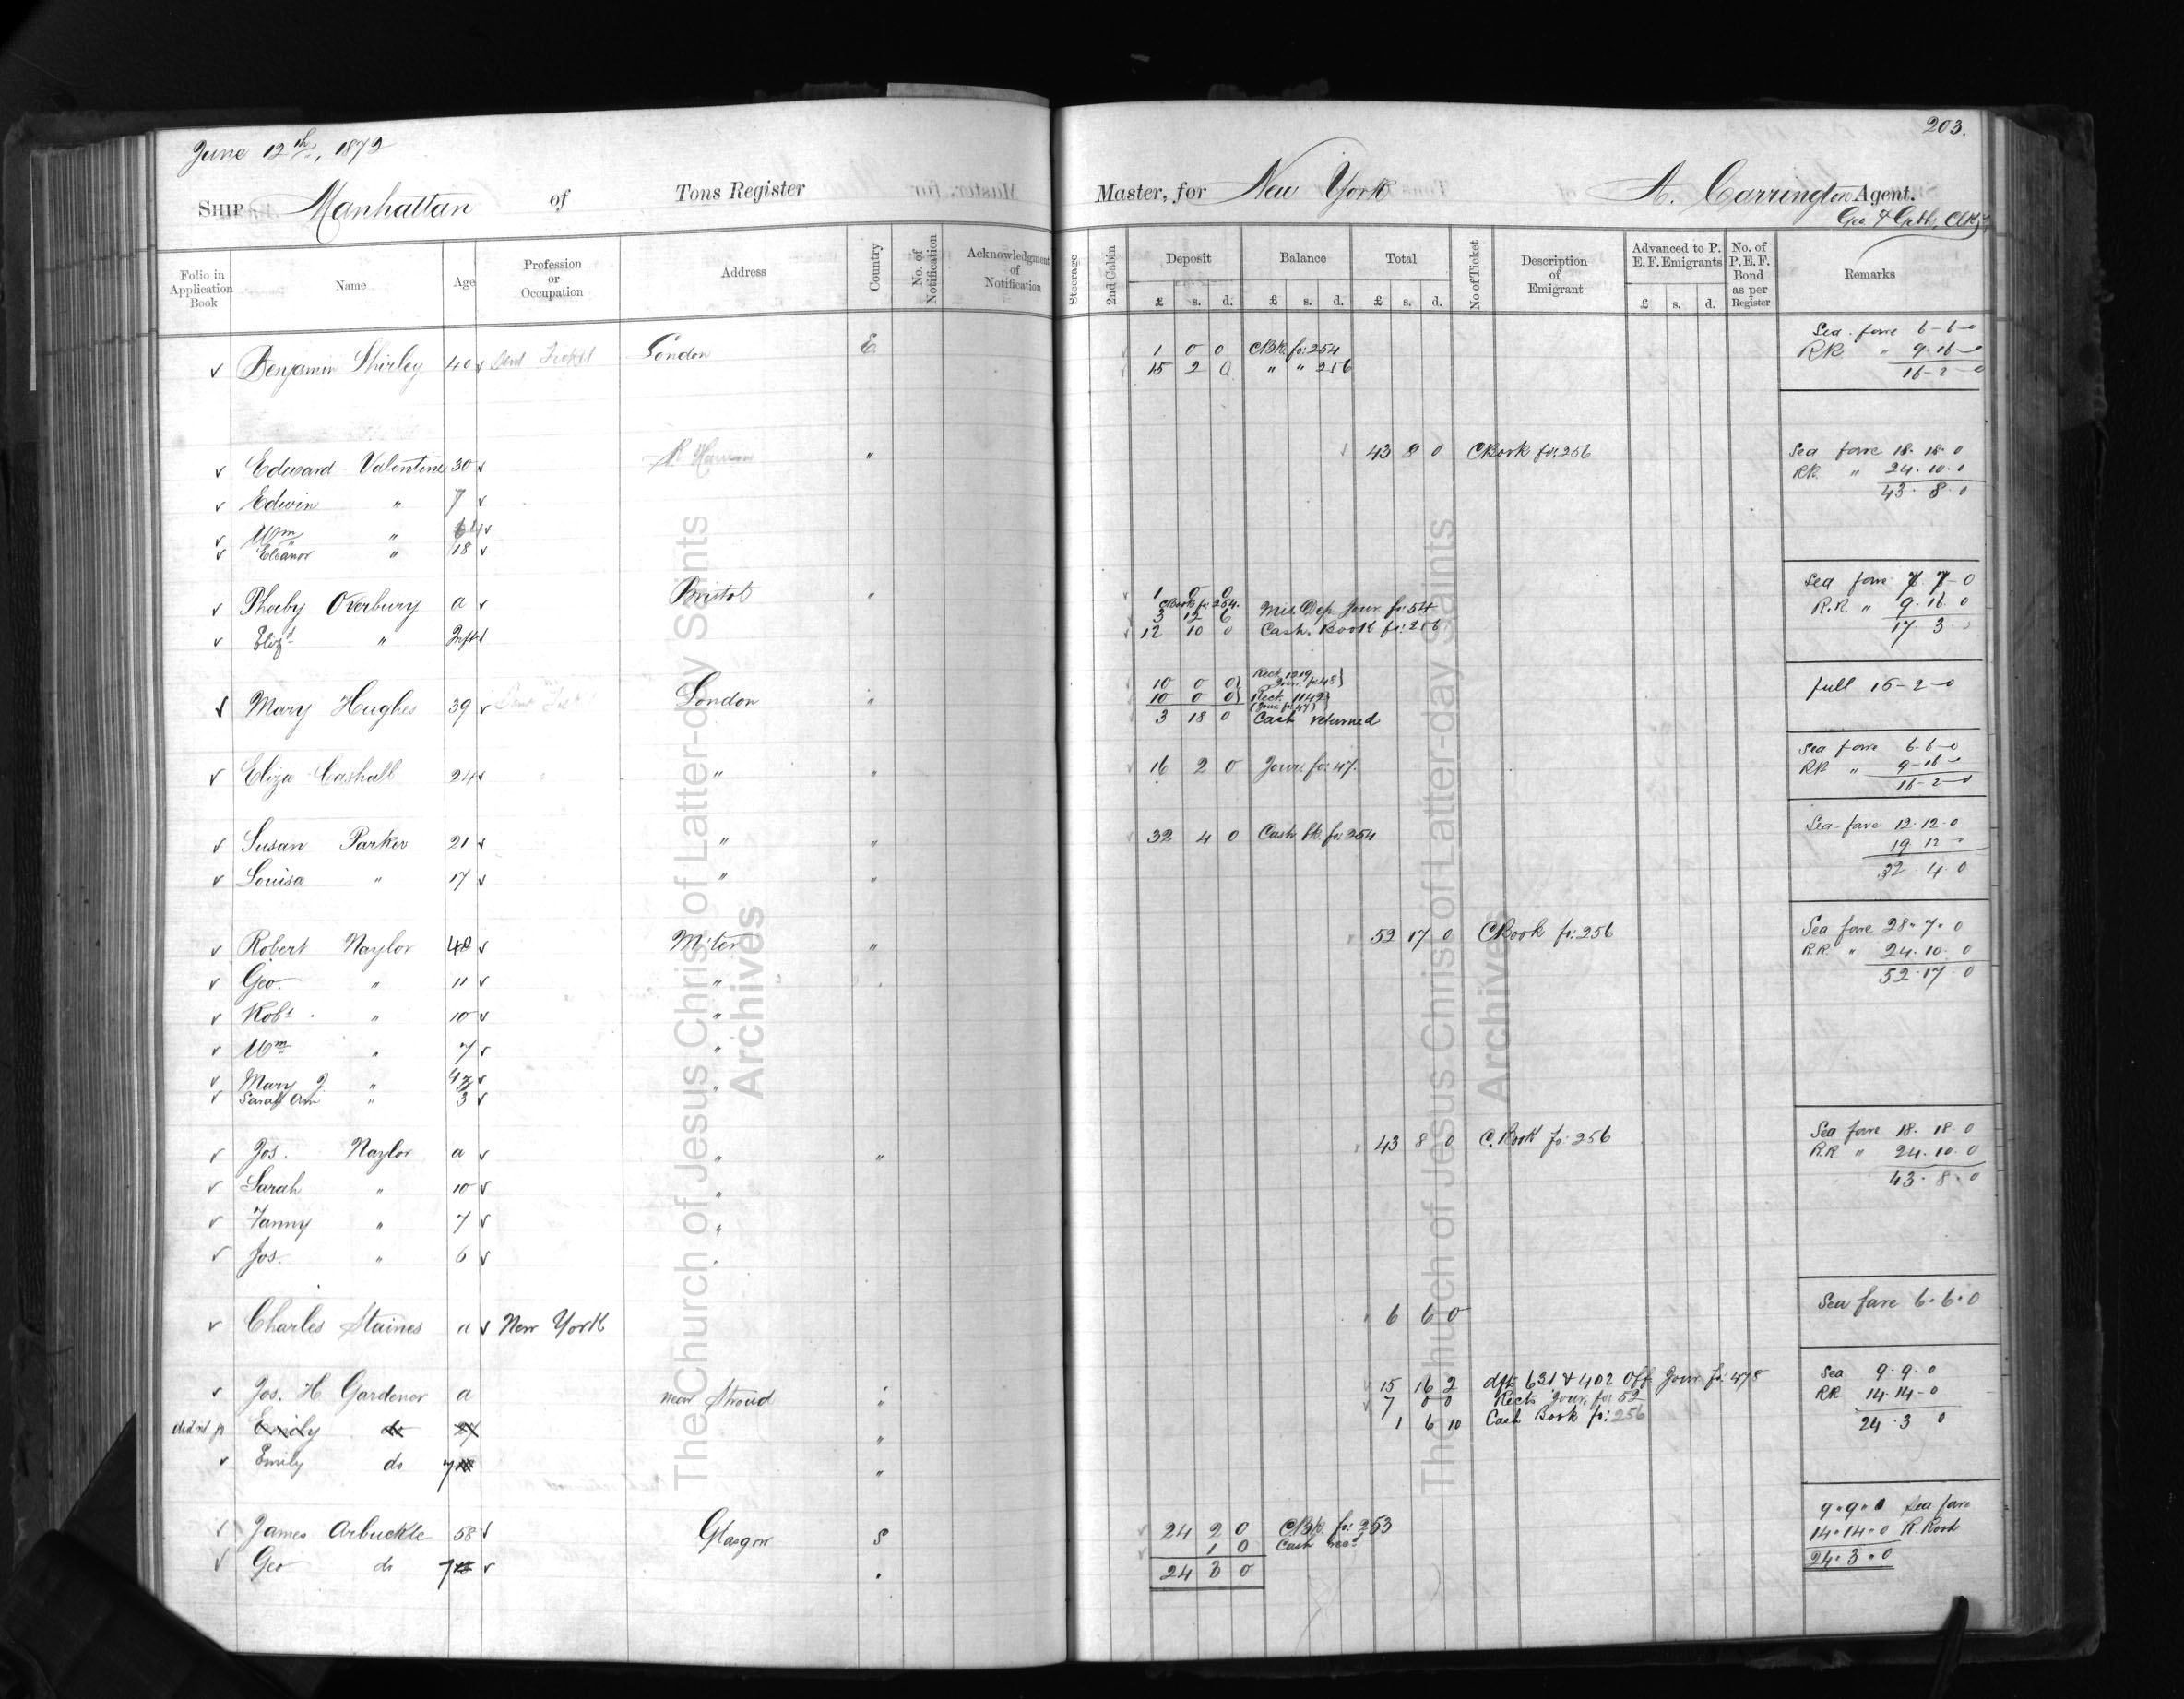 203.
June 12th, 1872
Ship Manhattan of Tons Register Master, for New York A. Carrington Agent.
Folio in Application Book Name Age Profession or Occupation Address Country No. of Notification Acknowledgment of Notification Steerage 2nd Cabin Deposit £ s. d. Balance £ s. d. Total £ s. d. No of Ticket Description of Emigrant Advanced to P. E. F. Emigrants £ s. d. No. of P. E. F. Bond as per Register Remarks
Sea fare 6-6-0
✓ Benjamin Shirley 40 ✓ London E. 1 0 0 CBk. fo: 254 RR " 9-16-0
15 2 0 " " 256 16-2-0
✓ Edward Valentine 30 ✓ " 43 8 0 CBook fo: 256 Sea fare 18. 18. 0
RR. " 24. 10. 0
✓ Edwin " 7 ✓ 43. 8. 0
✓ Wm " ✓
✓ Eleanor " 18 ✓
✓ Phoeby Overbury a ✓ Bristol " 1 0 0 Sea fare 7 7-0
CBook fo: 254.
3 12 6 Mis. Dep. Jour. fo: 54 R.R. " 9. 16. 0
✓ Elizth " Inft ✓ 12 10 0 Cash. Book fo: 256 17. 3
✓ Mary Hughes 39 ✓ London " 10 0 0 full 16-2-0
10 0 0 Rect. 1142
3 18 0 Cash returned
✓ Eliza Cashall 24 ✓ " " 16 2 0 Jour. fo: 47. Sea fare 6-6-0
RR " 9-16-0
16-2-0
✓ Susan Parker 21 ✓ " " 32 4 0 Cash. Bk. fo: 254 Sea-fare 12-12-0
19 12
✓ Louisa " 17 ✓ " " 32. 4. 0
✓ Robert Naylor 40 ✓ M'ter " 52 17 0 CBook fo: 256 Sea fare 28. 7. 0
R.R. " 24. 10. 0
✓ Geo. " 11 ✓ " 52. 17. 0
✓ Robt. " 10 ✓ "
✓ Wm " 7 ✓ "
✓ Mary J. " ✓ "
✓ Sarah Ann " 3 ✓
✓ Jos. Naylor a ✓ " " 43 8 0 C. Book fo: 256 Sea fare 18. 18. 0
R.R " 24. 10. 0
✓ Sarah " 10 ✓ " 43. 8. 0
✓ Fanny " 7 ✓ "
✓ Jos. " 6 ✓ "
✓ Charles Staines a ✓ New York 6 6 0 Sea fare 6. 6. 0
✓ Jos. H. Gardener a near Stroud " 15 16 2 dfts 631 & 402 Off. Jour. fo: 478 Sea 9. 9. 0
7 0 0 Rects Jour. fo: 52 RR 14. 14-0
Emily do " 1 6 10 Cash Book fo: 256 24. 3 0
✓ Emily do 7 "
✓ James Arbuckle 58 ✓ Glasgow S 24 2 0 C.Bk. fo: 253 9. 9. 0 Sea fare
1 0 Cash recd 14. 14. 0 R. Road
✓ Geo do 7 ✓ 24 3 0 24. 3. 0
The Church of Jesus Christ of Latter-day Saints
Archives
The Church of Jesus Christ of Latter-day Saints
Archives